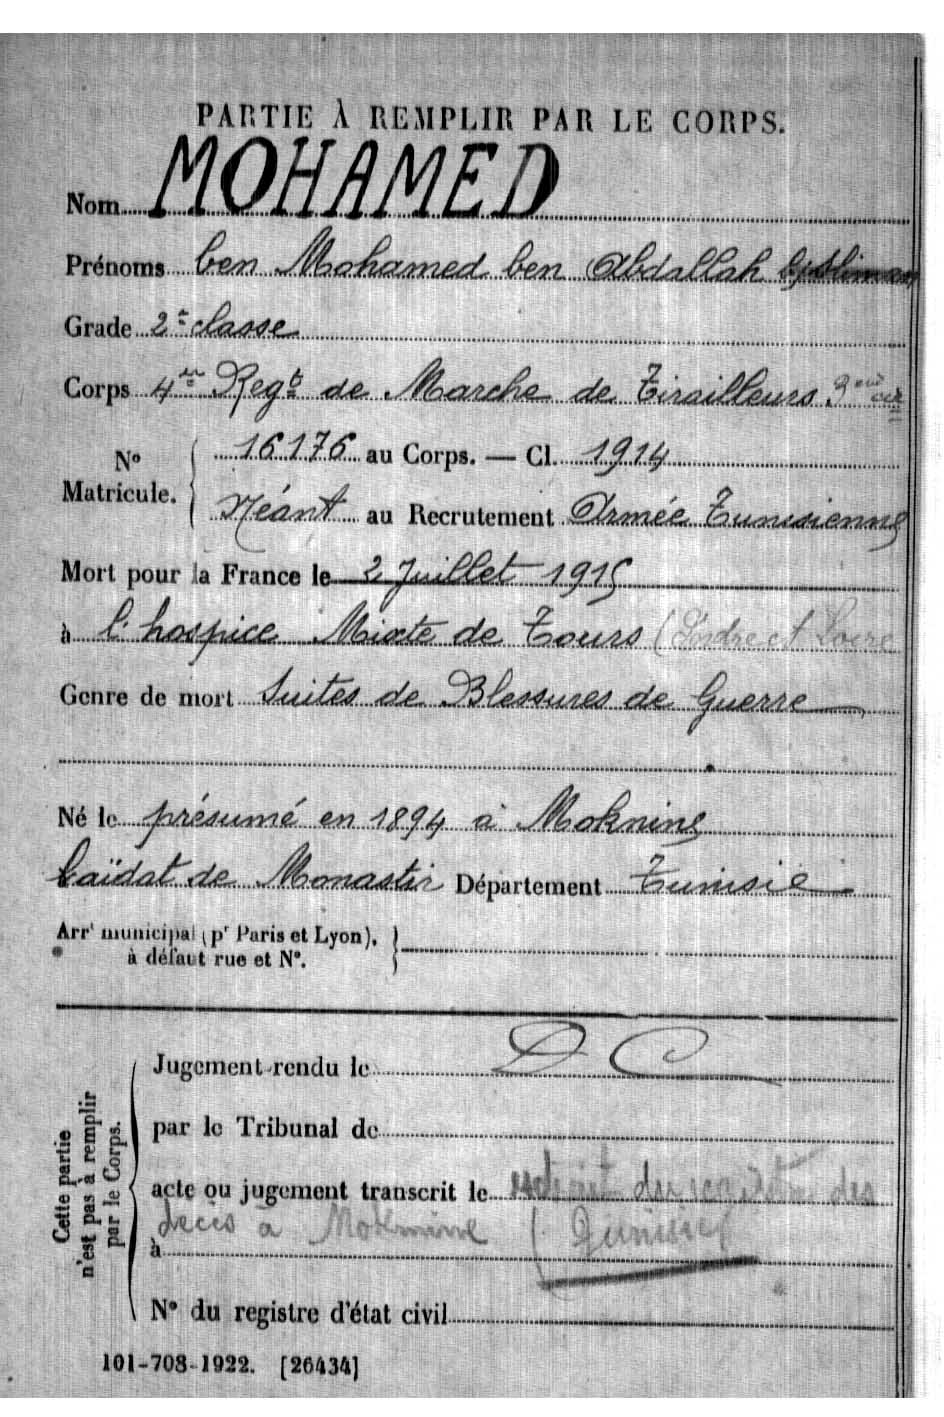 PARTIE À REMPLIR PAR LE CORPS.
Nom MOHAMED
Prénoms ben Mohamed ben Abdallah
Grade 2e classe
Corps 4me Regt de Marche de Tirailleurs 3eme
No Matricule. 16176 au Corps. — Cl. 1914
Néant au Recrutement Armée Tunisienne
Mort pour la France le 2 Juillet 1915
à l'hospice Mixte de Tours (Indre et Loire
Genre de mort Suites de Blessures de Guerre
Né le présumé en 1894 à Moknine
Caïdat de Monastir Département Tunisie
Arrt municipal (pr Paris et Lyon),
à défaut rue et No.
Cette partie n'est pas à remplir par le Corps.
Jugement rendu le D C
par le Tribunal de
acte ou jugement transcrit le extrait du des
décès à Moknine (Tunisie)
à
No du registre d'état civil
101-708-1922. [26434]